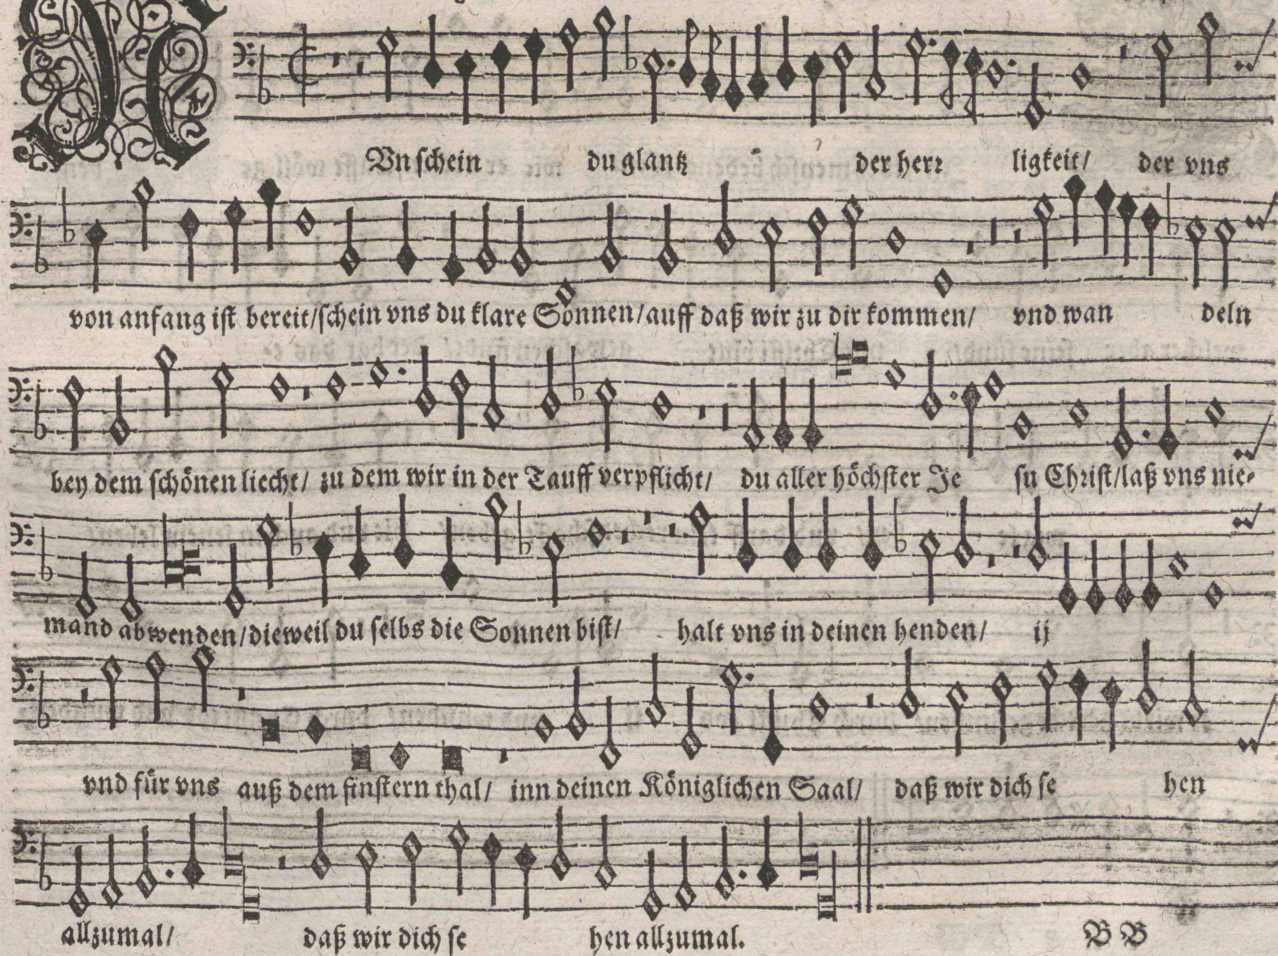 NUn schein du glantz der herr ligkeit/ der vns
von anfang ist bereit/schein vns du klare Sonnen/auff daß wir zu dir kommen/ vnd wan deln
bey dem schönen liecht/ zu dem wir in der Tauff verpflicht/ du aller höchster Je su Christ/laß vns nie-
mand abwenden/dieweil du selbs die Sonnen bist/ halt vns in deinen henden/ ij
vnd für vns auß dem finstern thal/ inn deinen Königlichen Saal/ daß wir dich se hen
allzumal/ daß wir dich se hen allzumal. BB